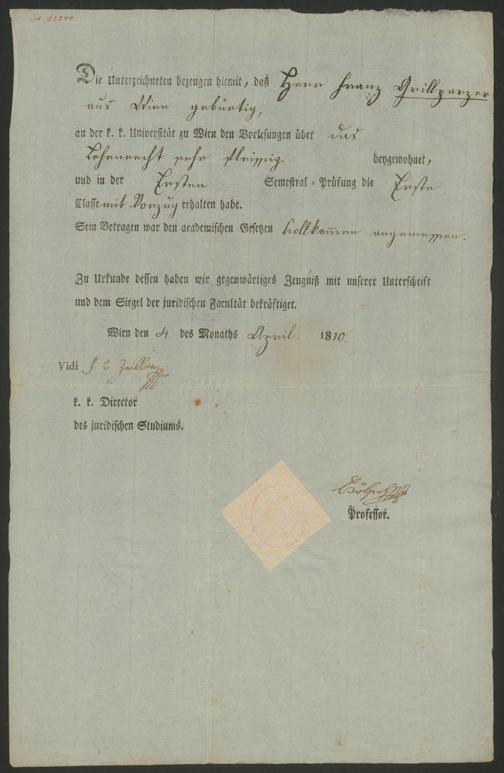 Die Unterzeichneten bezeugen hiemit, daß Herr Franz Grillparzer
aus Wien gebürtig,
an der k. k. Universität zu Wien den Vorlesungen über das
Lehenrecht sehr fleissig beygewohnet,
und in der Ersten Semestral-Prüfung die Erste
Classe mit Vorzug erhalten habe.
Sein Betragen war den academischen Gesetzen vollkom̅en angemessen.
Zu Urkunde dessen haben wir gegenwärtiges Zeugniß mit unserer Unterschrift
und dem Siegel der juridischen Facultät bekräftiget.
Wien den 4. des Monaths April. 1810.
Vidi F. v. Zeiller
k. k. Director
des juridischen Studiums.
Professor.